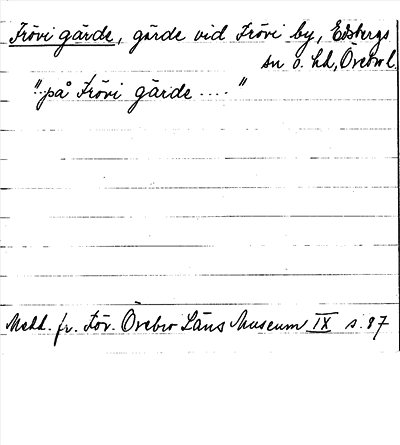 Frövi gärde, gärde vid Frövi by, Edsbergs
sn o. hd, Örebro l.
"på Frövi gärde ...."
Medd. fr. För. Örebro Läns Museum IX s. 87